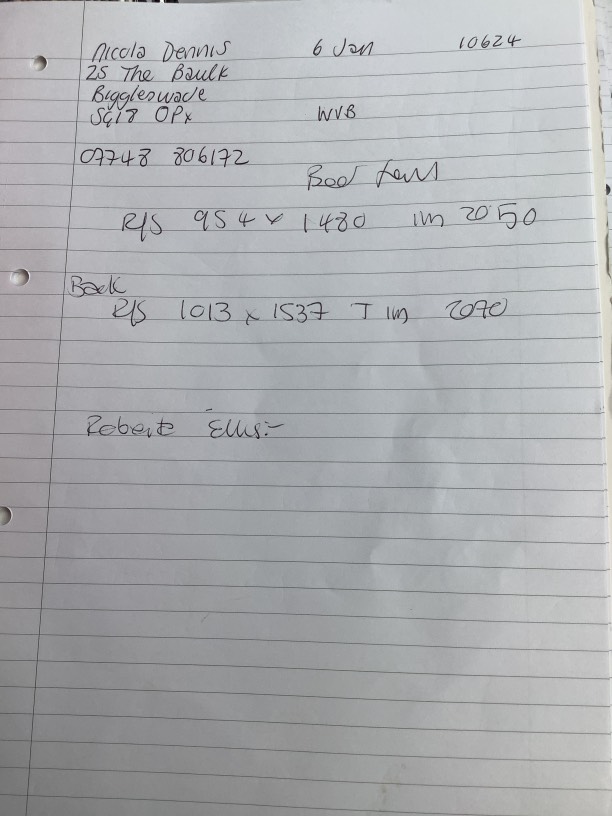 Nicola Dennis 6 Jan 10624
25 The Baulk
Biggleswade
SG18 0Px WVB
07748 806172
Bed
R/S 954 x 1480 1m 2050
Back
R/S 1013 x 1537 T 1m 2070
Roberts Ellis:-